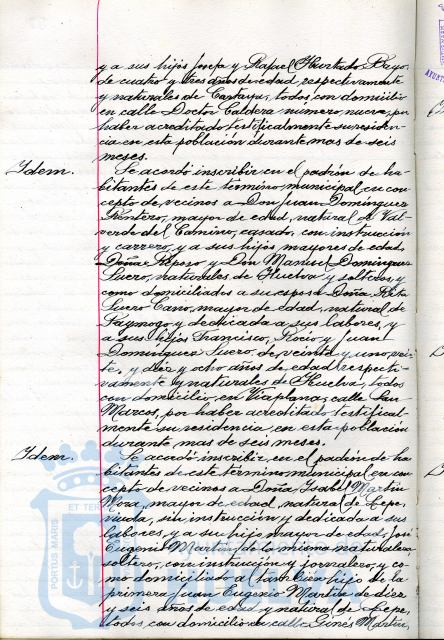 y a sus hijos Josefa y Rafael Hurtado Bayo,
de cuatro y tres años de edad, respectivamente
y naturales de Cartaya; todos con domicilio
en calle Doctor Caldera numero nueve, por
haber acreditado testificalmente su residen-
cia en esta población durante mas de seis
meses.
Idem. Se acordó inscribir en el padrón de ha-
bitantes de este termino municipal, en con-
cepto de vecinos a Don Juan Domínguez
Rentero, mayor de edad, natural de Val-
verde del Camino, casado, con instrucción
y carrero, y a sus hijos mayores de edad
Doña Reposo y Don Manuel Domínguez
Suero, naturales de Huelva y solteros, y
como domiciliados a su esposa Doña Rita
Suero Cano, mayor de edad, natural de
Paymogo y dedicada a sus labores, y
a sus hijos Francisco, Rocio y Juan
Domínguez Suero, de veinte y uno, vein-
te, y diez y ocho años de edad respecti-
vamente y naturales de Huelva, todos
con domicilio en Viaplana, calle San
Marcos, por haber acreditado testifical-
mente su residencia en esta población
durante mas de seis meses.
Idem. Se acordó inscribir en el padrón de ha-
bitantes de este termino municipal en con-
cepto de vecinos a Doña Isabel Martin
Mora, mayor de edad, natural de Lepe,
viuda, sin instrucción y dedicada a sus
labores, y a su hijo mayor de edad, José
Eugenio Martin, de la misma naturaleza,
soltero, con instrucción y jornalero, y co-
mo domiciliado al tambien hijo de la
primera Juan Eugenio Martin de diez
y seis años de edad y natural de Lepe,
todos con domicilio en calle Ginés Martin,
PORTUS MARIS ET TERR